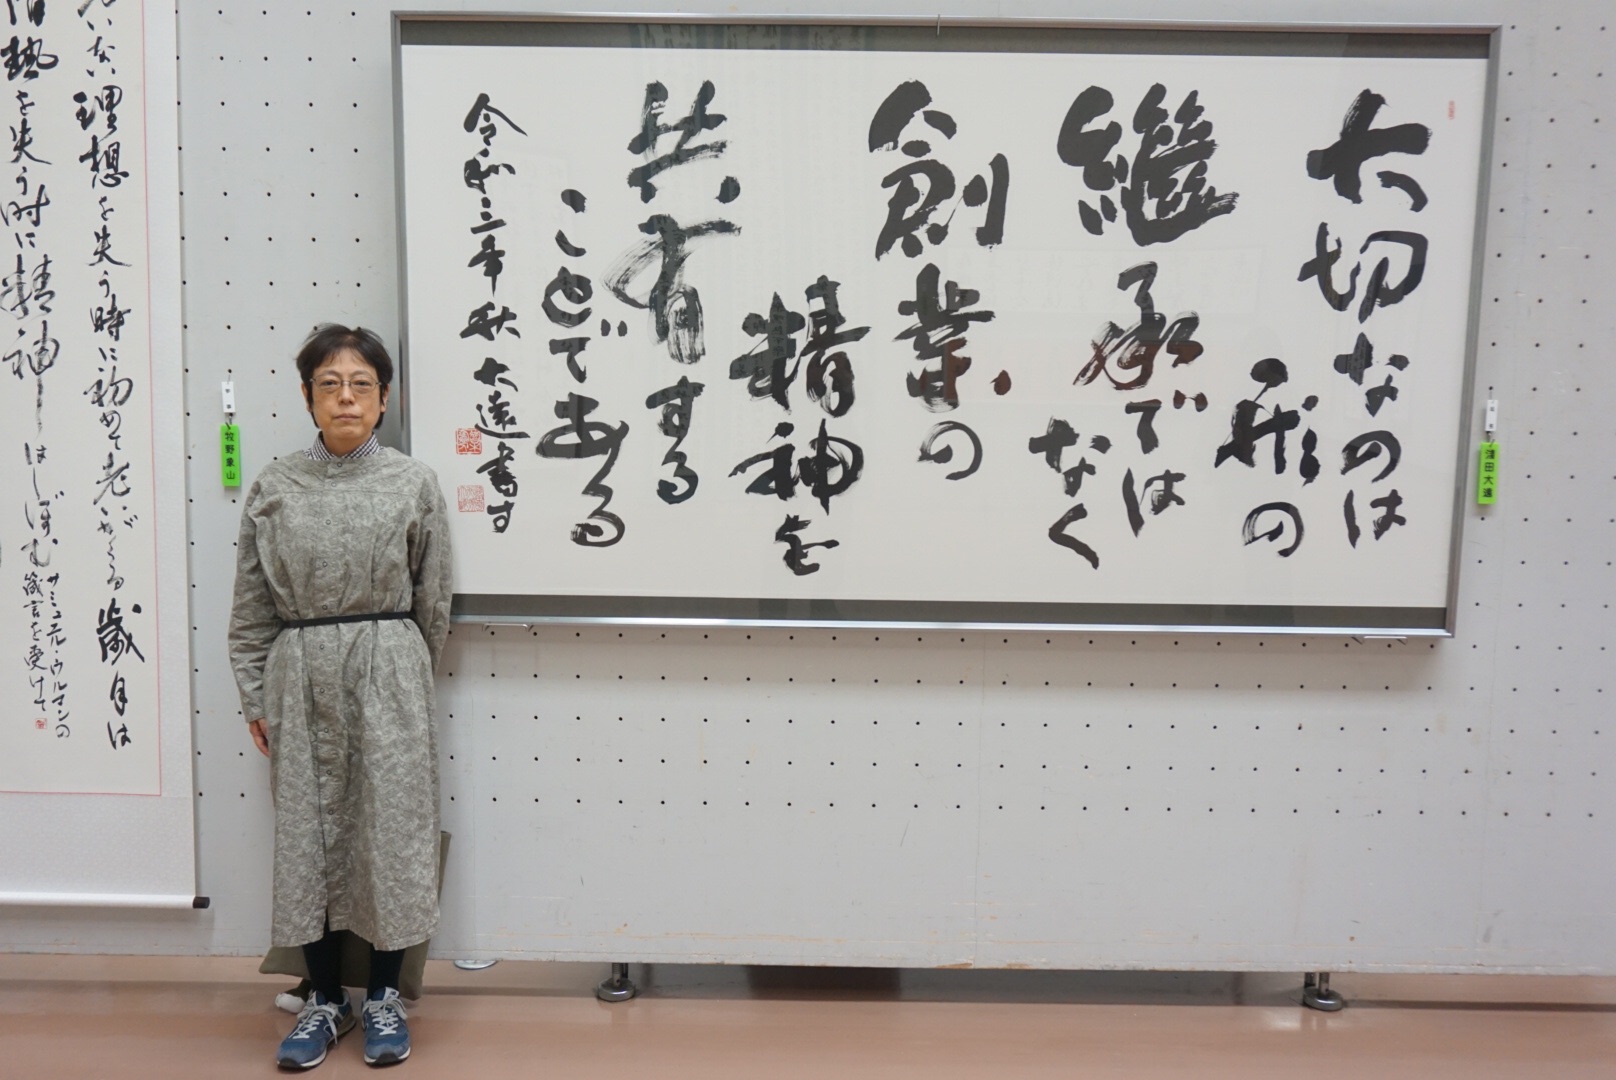 大切なのは
形の
継承では
なく
創業の
精神を
共有する
ことで
ある
令和三年秋 大遠書す
蒲田大遠
牧野象山
い理想を失う時に初めて老いがくる歳月は
情熱を失う時に精神はしぼむ
サミュエル・ウルマンの
箴言を受けて